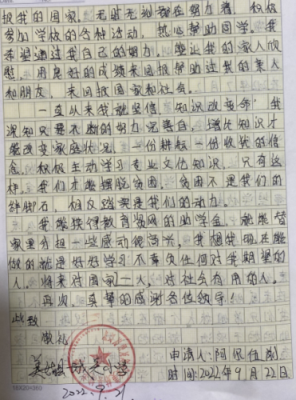 报我的国家，无时无刻都在努力着，积极
参加学校的各种活动，热心帮助同学。我
希望通过我自己的努力，能让我的家人欣
慰，用良好的成绩来回报帮助过我的亲人
和朋友，来回报国家和社会。
一直以来我就坚信"知识改变命"我
深知只有不断的努力完善自，增长知识才
能改变家庭状况。一份耕耘一份收获的信
念，积极主动学习专业文化知识，只有这
样，我们才能摆脱贫困，贫困不是我们的
绊脚石，相反践更是我们的动力。
我能获得教育资网的助学金，就能替
家里分担一些，感动很高兴，我想我现在能
做的就是好好学习不辜负任何对我期望的
人，将来对国家一人，对社会有用的人。
再次，真挚的感谢各位领导！
此致
敬礼
申请人：阿
2022.9.21
时间：2022年9月22日